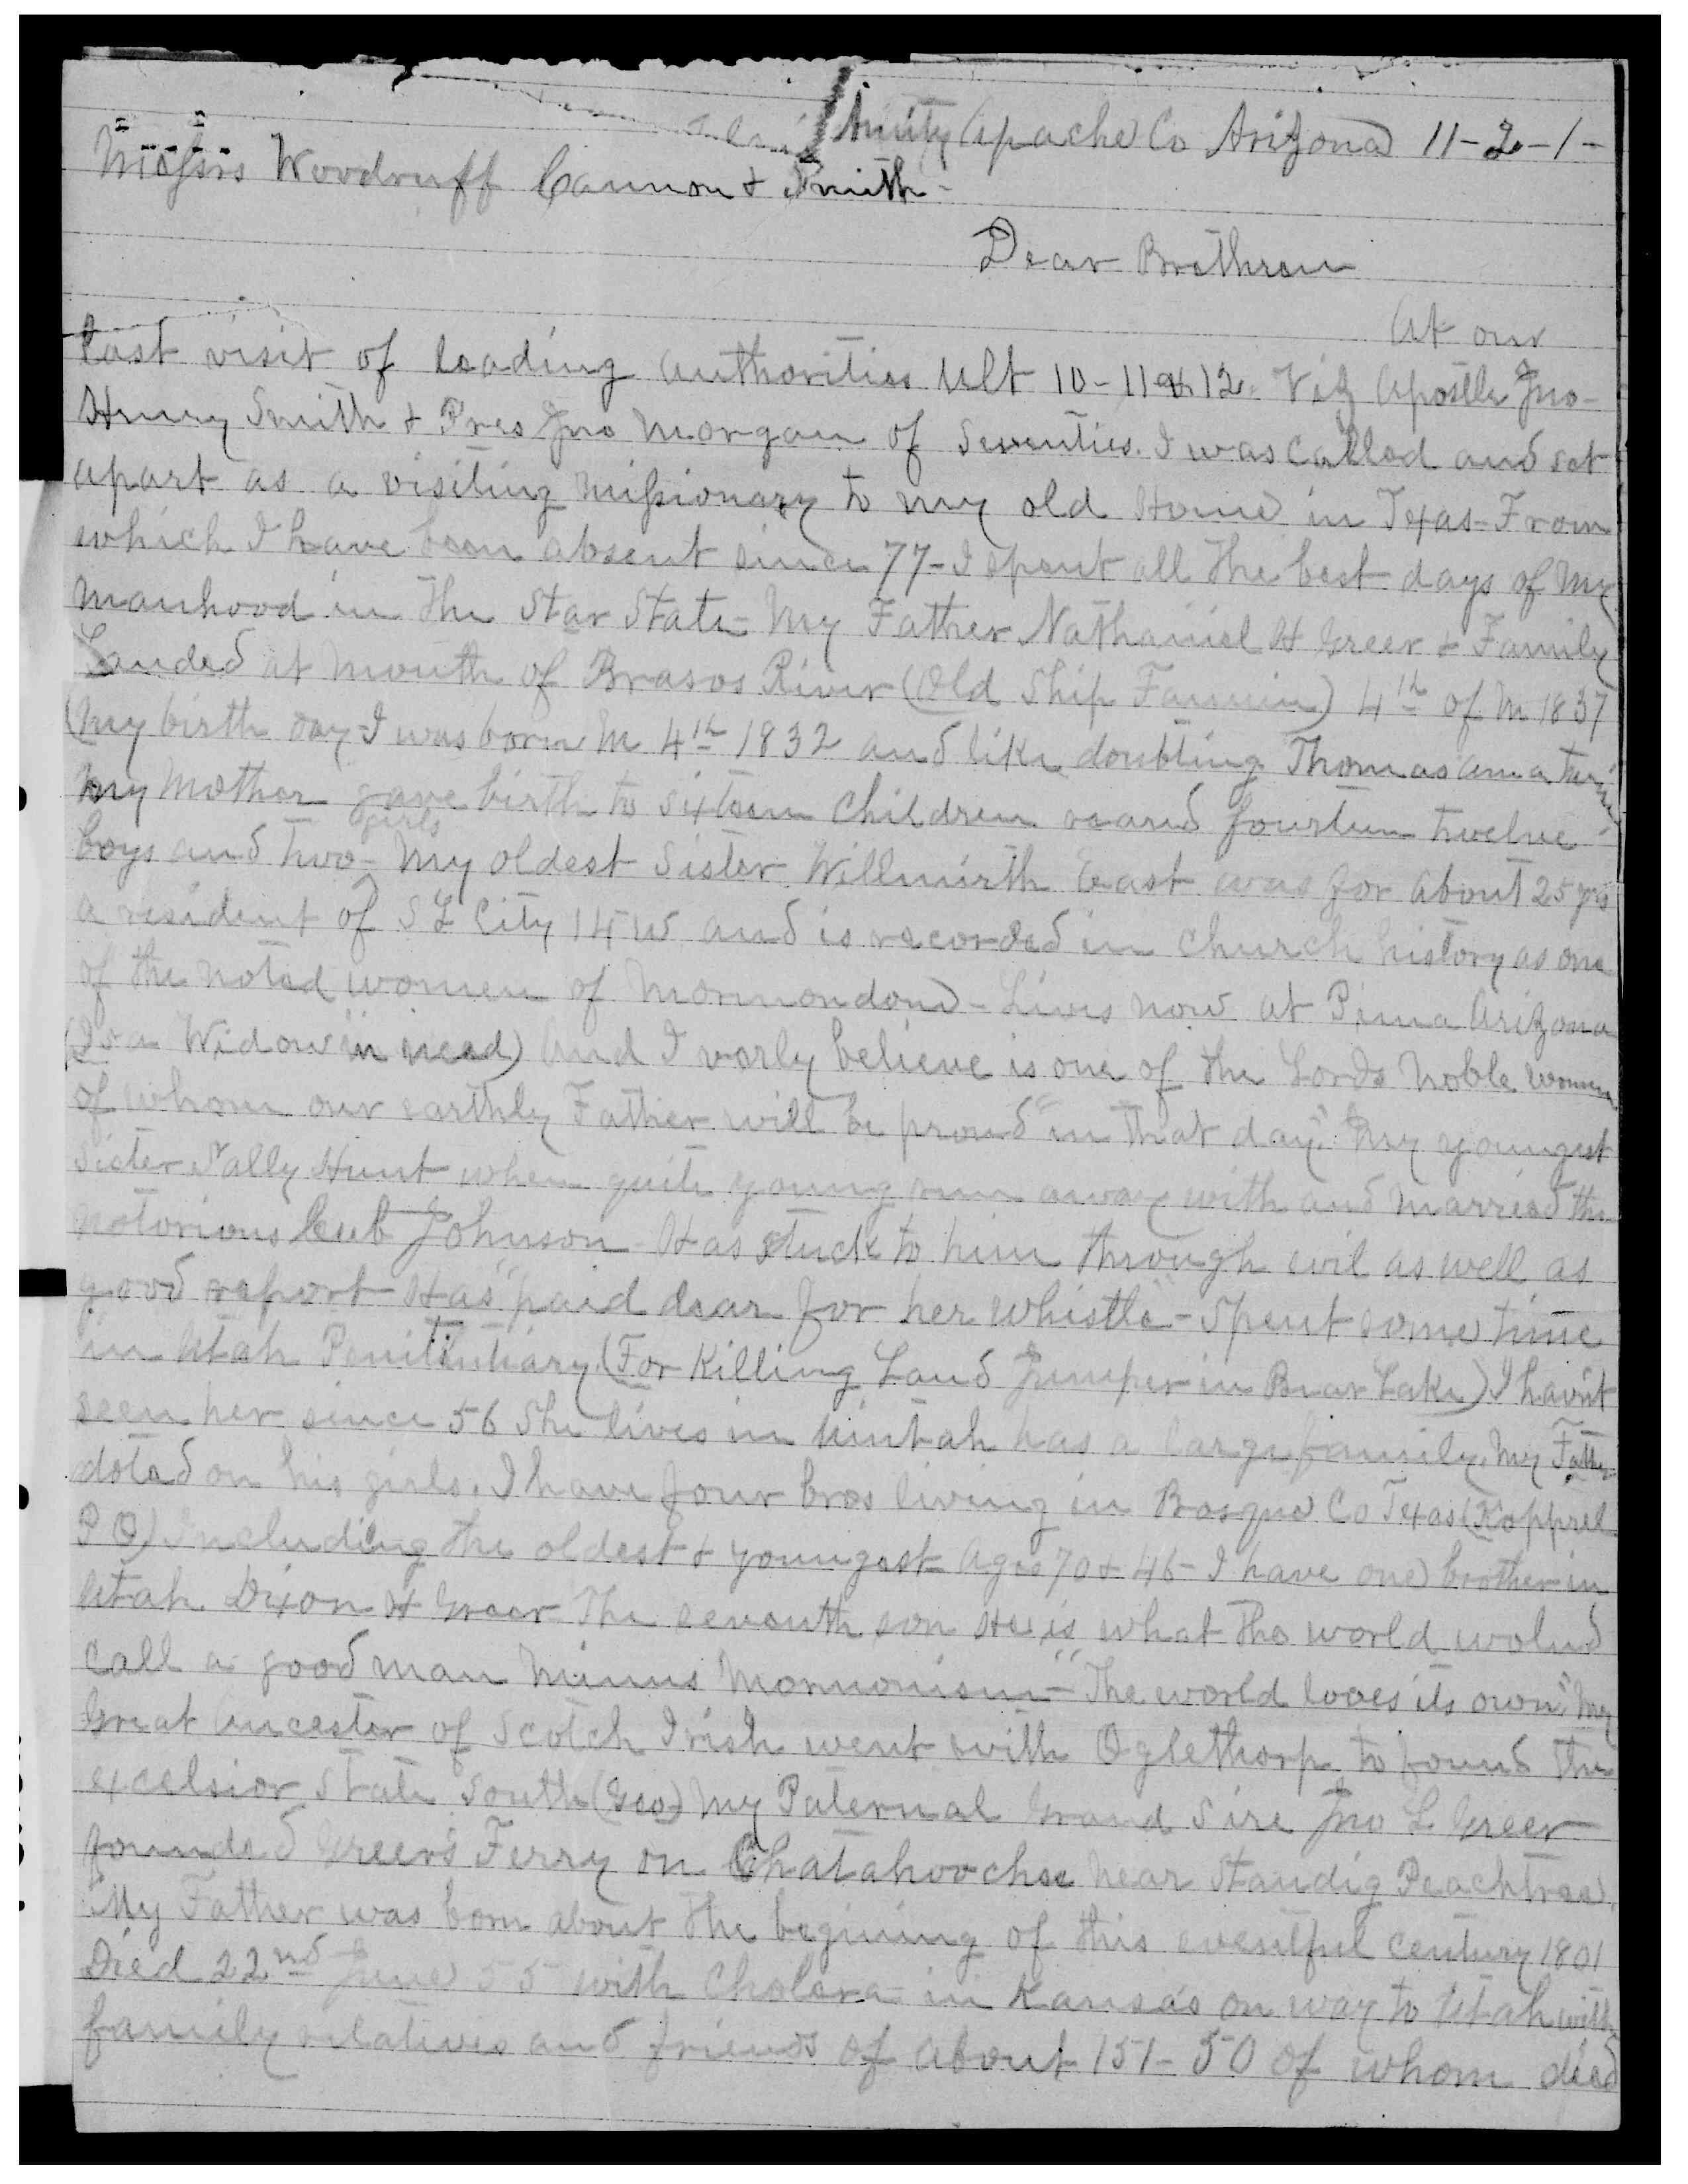 Amity Apache Co Arizona 11-2-1-
Messrs Woodruff Cannon & Smith-
Dear Brethren
At our
last visit of leading authorities ult 10-11 & 12. Viz Apostle Jno-
Henry Smith & Pres Jno Morgan of Seventies. I was Called and set
apart as a visiting missionary to my old Home in Texas- From
which I have been absent since 77- I spent all the best days of my
manhood in the Star State- My Father Nathaniel H Greer & Family
Landed at mouth of Brasos River (Old Ship Fannin) 4th of M 1837
(My birth day- I was born M 4th 1832 and like doubting Thomas am a twin
My Mother gave birth to sixteen Children reared fourteen twelve
boys and two girls- My oldest Sister Willmirth East was for about 25 yrs
a resident of S L City 14 W and is recorded in Church history as one
of the noted women of Mormondom- Lives now at Pima Arizona
(Is a Widow in need) And I varly believe is one of the Lords Noble women
of whom our earthly Father will be proud "in that day." My youngest
Sister Sally Hunt when quite young run away with and married the
notorious Cub Johnson- Has stuck to him through evil as well as
good report- Has "paid dear for her whistle"- Spent some time
in Utah Penitentiary (For Killing Land Jumper in Bear Lake) I havit
seen her since 56 She lives in Uintah has a large family. My Father
doted on his girls. I have four bros living in Bosque Co Texas (Kopprel
P O) Including the oldest & youngest Ages 70 & 46- I have one brother in
Utah Dixon H Greer The seventh son He is what the world wolud
call a good man minus Mormonism- "The world loves its own" My
Great Ancester of Scotch Irish went with Oglethorp to found the
excelsior State South (Geo-) My Paternal Grand Sire Jno L Greer
founded Greer's Ferry on Chatahoochee near Standig Peachtree.
My Father was born about the begining of this eventful century 1801
Died 22nd June 55 with Cholera in Kansas on way to Utah with
family relatives and friends of about 151- 50 of whom died